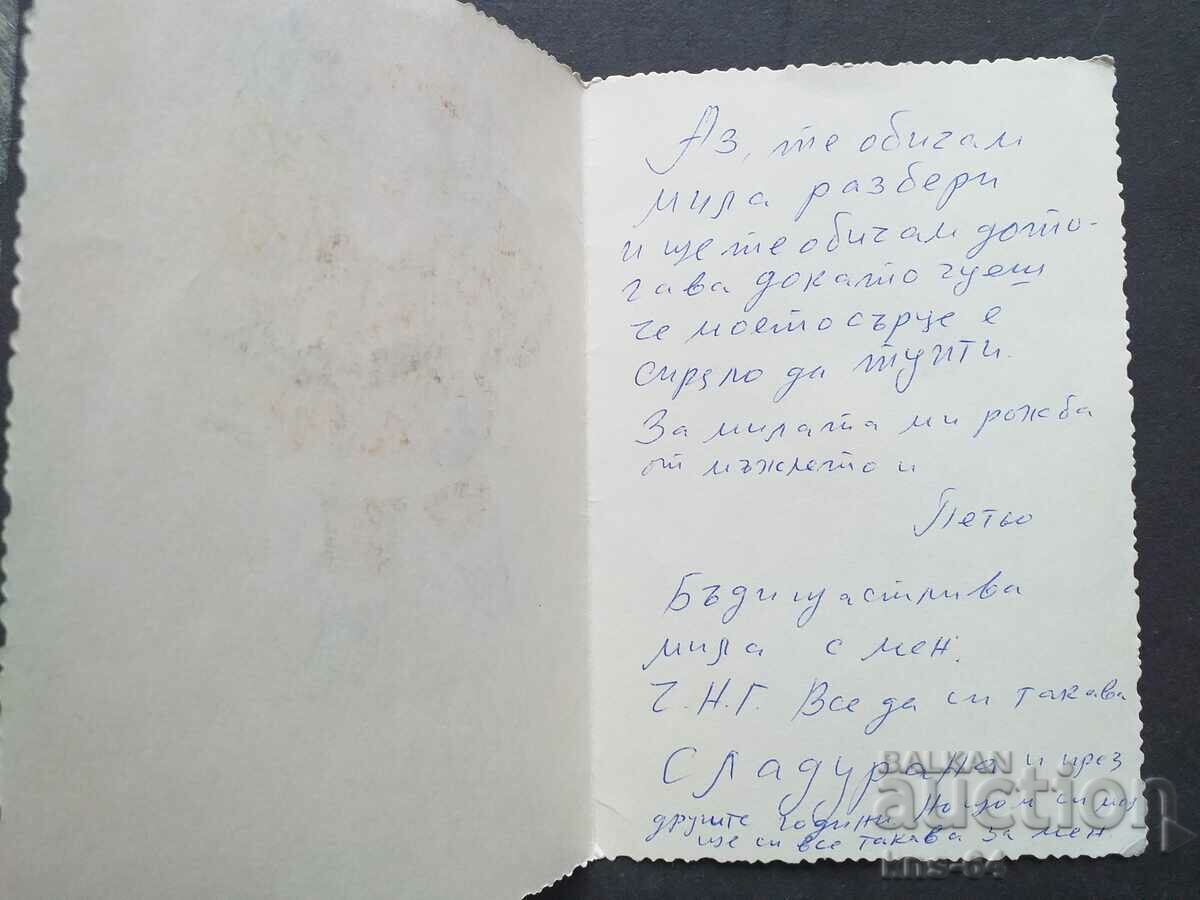 Аз, те обичам
мила разбери
и ще те обичам дото-
гава докато чуеш
че моето сърце е
спряло да тупти.
За милата ми рожба
от мъжлето и
Петьо
Бъди щастлива
мила с мен.
Ч.Н.Г. Все да си такава
Сладурана и през
другите години
ще си все такава за мен
BALKAN
auction
kns-64